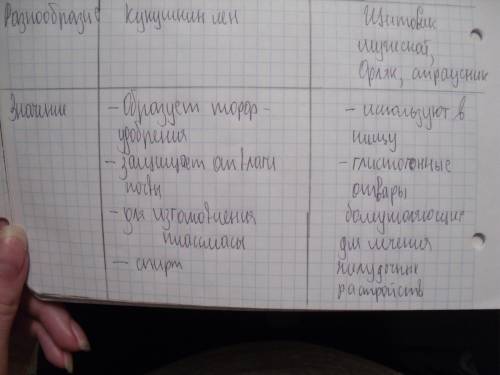 Разнообразие
Кукушкин лен
Щитовик
мужской,
Орляк, страусник
Значение
– Образует торф –
удобрения
– защищает от влаги
почвы
– для изготовления
пластмасы
– спирт
– используют в
пищу
– глистогонные
отвары
болеутоляющие
для лечения
желудочных
растройств